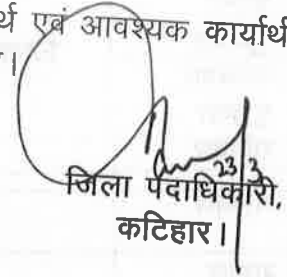 र्थ एवं आवश्यक कार्यार्थ
।
23/3
जिला पदाधिकारी,
कटिहार।